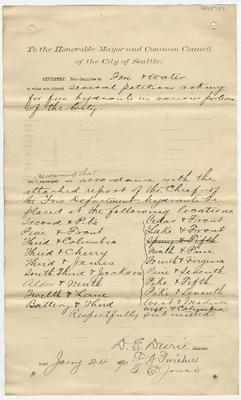 To the Honorable Mayor and Common Council
of the City of Seattle:
GENTLEMEN: Your Committee on Fire & Water
to whom was referred several petitions asking
for fire hydrants in various portions
of the City.
recommend that
in accordance with the
attached report of the Chief of
the Fire Department hydrants be
placed at the following locations
Second & Pike
Pine & Front
Third & Columbia
Third & Cherry
Third & James
South Third & Jackson
Alder & Ninth
Twelfth & Lane
Battery & Third
Cedar & Front
Lake & Front
Spring & Fifth
Ninth & Pine
Fourth & Virginia
Pine & Seventh
Pike & Fifth
Pike & Seventh
West & Madison
West & Columbia
Respectfully submitted
D. E. Durie Chairman
Jany 24 90
F. A. Twichell